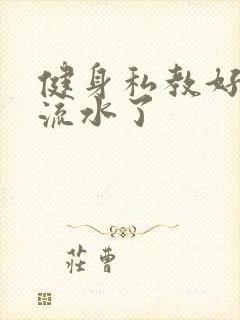 健身私教好
流水了
莊曹